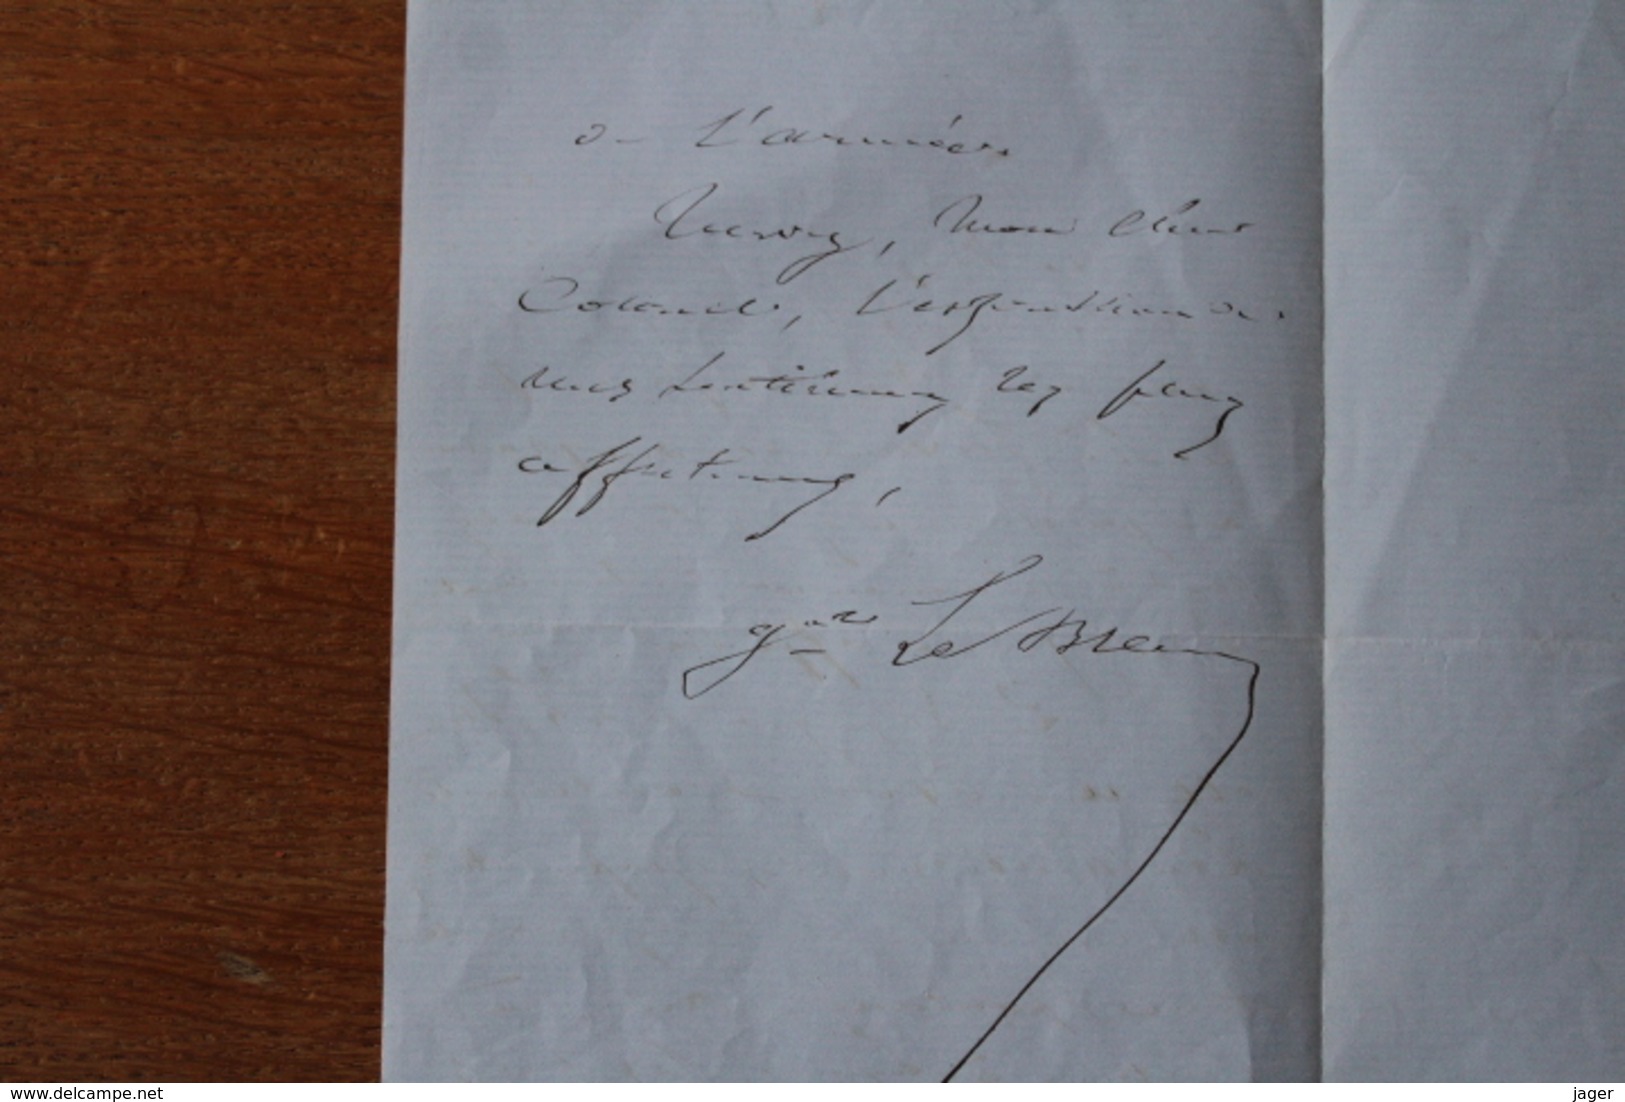 de l'armée.
Recevez, mon cher
Colonel, l'expression de
mes sentiments les plus
affectueux,
Gal Le Brun
delcampe.net
jager